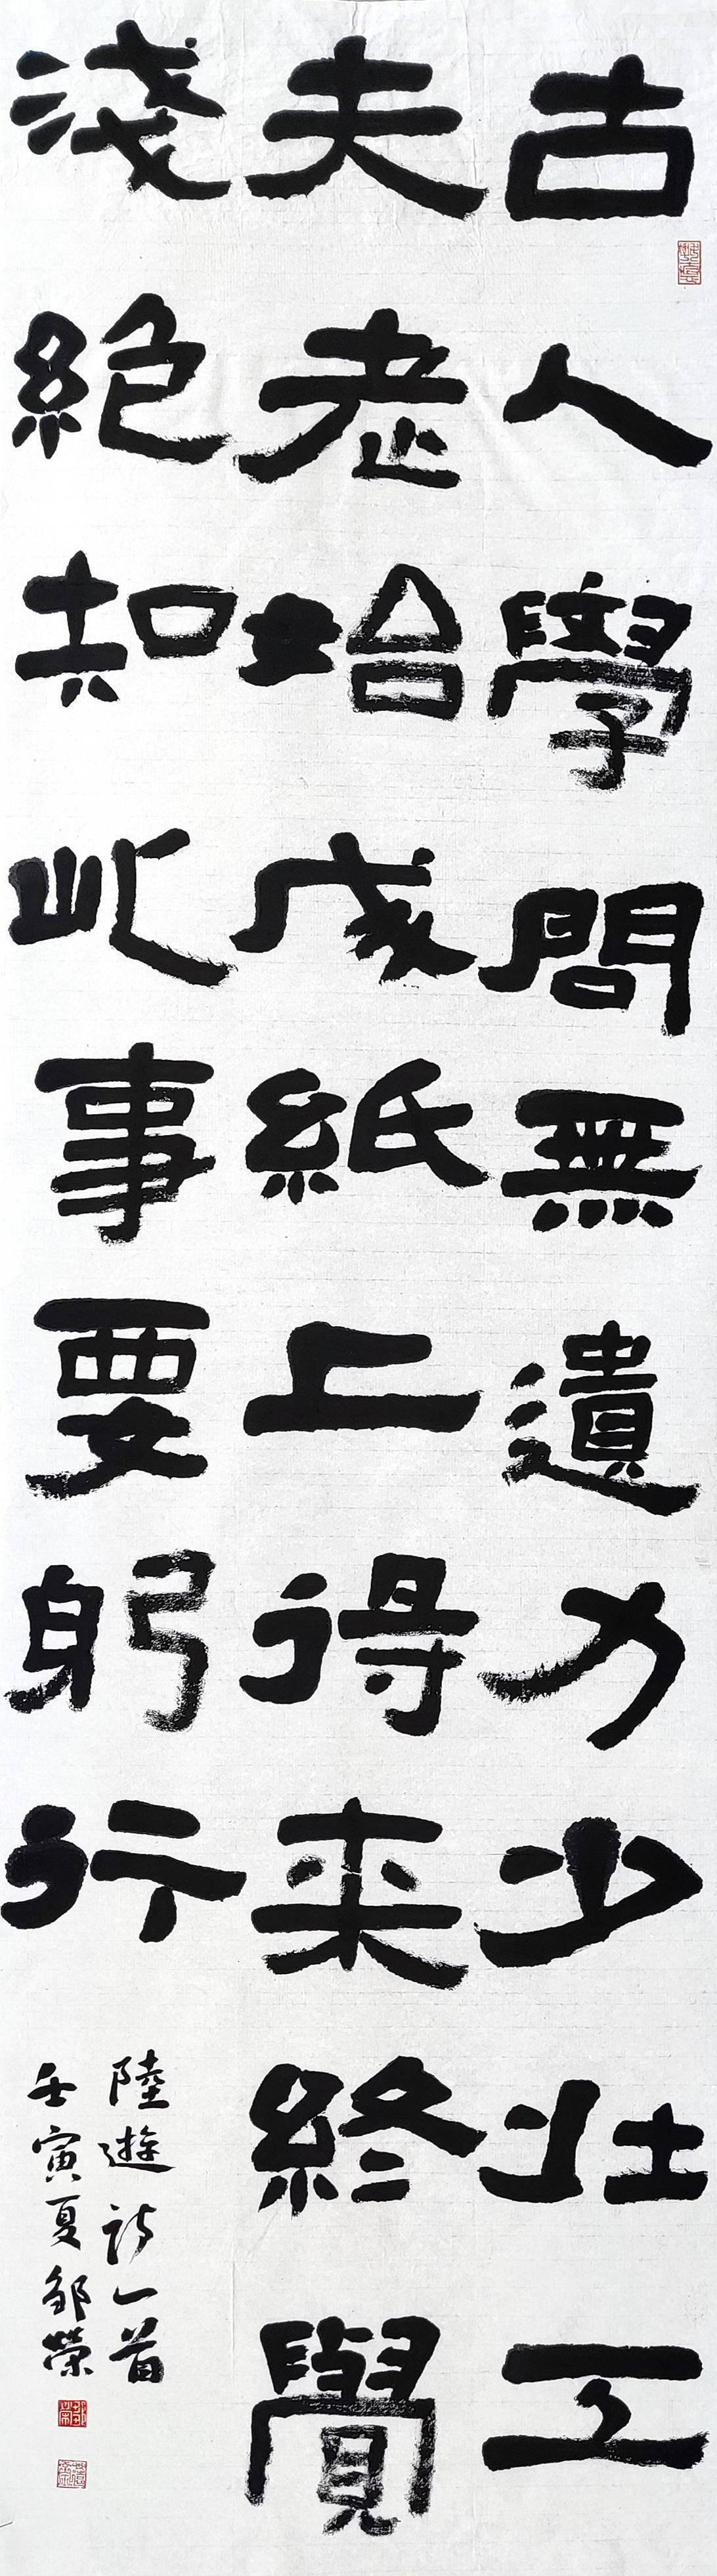 古人學問無遺力少壯工
夫老始成紙上得来終覺
淺絕知此事要躬行
陸遊詩一首
壬寅夏鄒榮